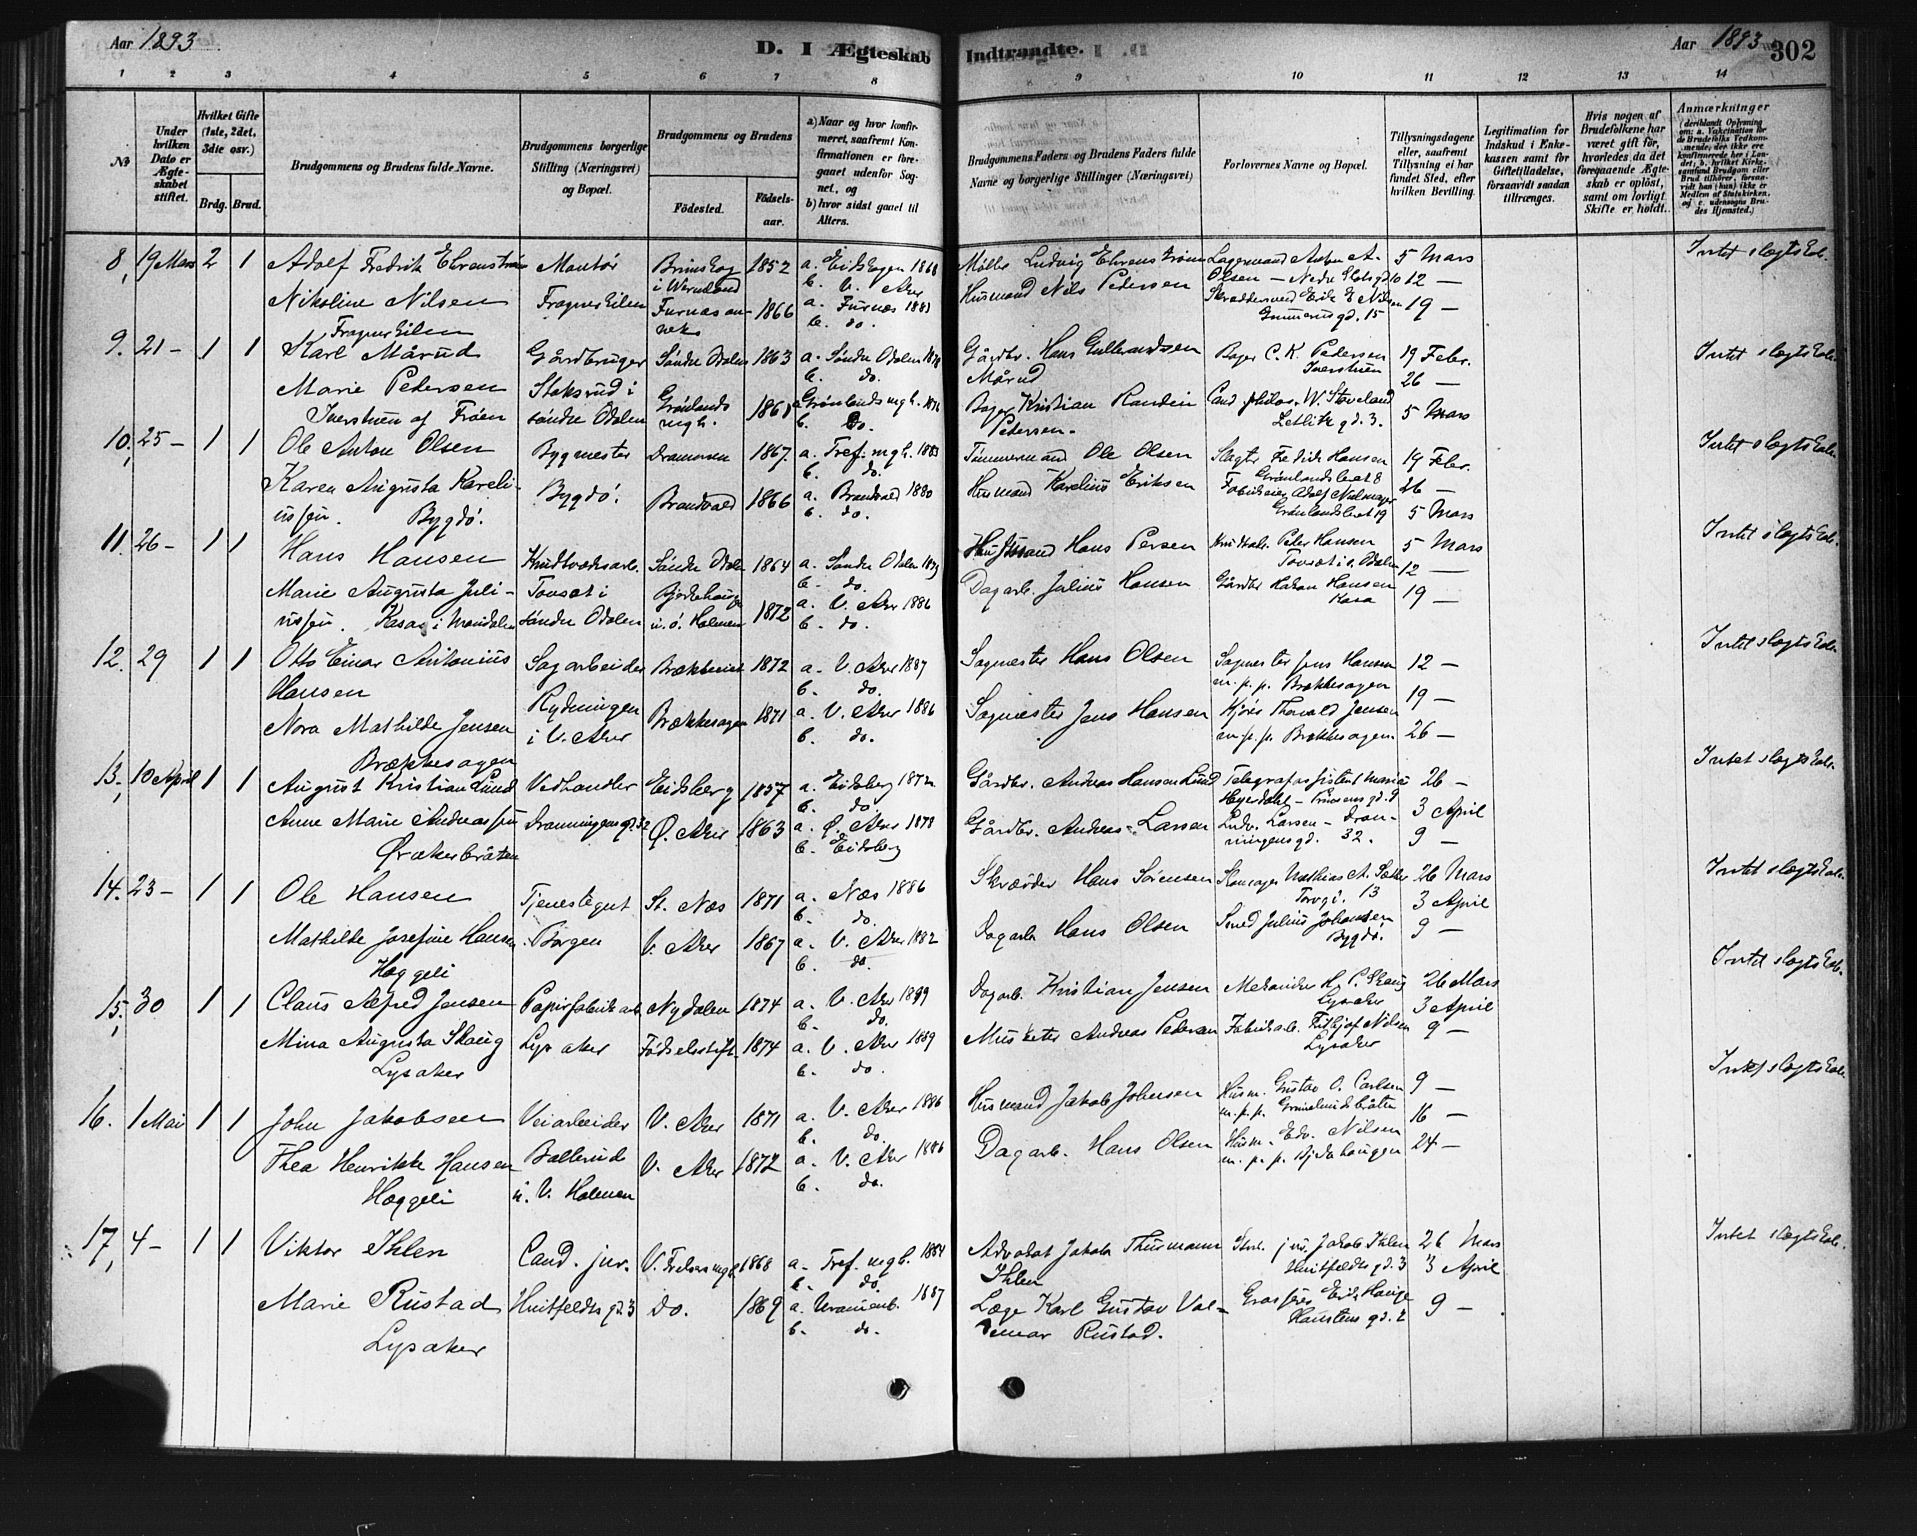 Aar 1893
D. I Ægteskab
Indtraadte.
Aar 1893
302
1 2 3 4 5 6 7 8 9 10 11 12 13 14
No
Under hvilken Dato er Ægteskabet stiftet.
Hvilket Gifte (1ste, 2det, 3die osv.)
Brdg. Brud.
Brudgommens og Brudens fulde Navne.
Brudgommens borgerlige Stilling (Næringsvei) og Bopæl.
Brudgommens og Brudens
Fødested.
Fødsels-aar.
a) Naar og hvor konfirmeret, saafremt Konfirmationen er foregaaet udenfor Sognet, og
b) hvor sidst gaaet til Alters.
Brudgommens Faders og Brudens Faders fulde Navne og borgerlige Stillinger (Næringsvei)
Forlovernes Navne og Bopæl.
Tillysningsdagene eller, saafremt Tillysning ei har fundet Sted, efter hvilken Bevilling.
Legitimation for Indskud i Enkekassen samt for Giftetilladelse, forsaavidt saadan tiltrænges.
Hvis nogen af Brudefolkene har været gift før, hvorledes da det foregaaende Ægteskab er opløst, samt om lovligt Skifte er holdt.
Anmærkninger
8, 19 Mars 2 1 Adolf Fredrik Ehrenström Montör Brunskog i Wermland 1852 a. Eidskogen 1868 b. V. Aker
Nikoline Nilsen Frognerkilen Furnæs anneks 1866 a. Furnæs 1881 b. do.
Frognerkilen
Møller Ludvig Ehrenström Lagermand Anton A. Olsen – Nedre Slotsgd 10 5 Mars
Husmand Nils Pedersen Skræddersvend Erik E Nilsen Gunnerusgd. 15 12 – 19 –
Intet slægtskab.
9. 21 – 1 1 Karl Mårud Gårdbruger Søndre Odalen 1863 a. Søndre Odalen 1878 b. do.
Marie Pedersen Stoksrud i søndre Odalen Grønlands mgh. 1861 a. Grønlands mgh. 1876 b. do.
Iverstuen af Frøen
Gårdbr. Hans Gulbrandsen Mårud Bager C. K. Pedersen Iverstuen 19 Febr.
Bager Kristian Randin Pedersen. Cand philos. W. Støveland 26 – 5 Mars
Intet slægtskab.
10, 25 – 1 1 Ole Anton Olsen Bygmester Drammen 1867. a. Tref. mgh. 1883 b. do.
Karen Augusta Kareliussen. Bygdø. Bygdø. Brandvald 1866 a. Brandvold 1880 b. do.
Tømmermand Ole Olsen Slagter Fredrik Hansen Grønlandsleret 8 19 Febr.
Husmand Karelius Eriksen Grønlandsleret 19 26 – 5 Mars
Intet slægtskab.
11. 26 – 1 1 Hans Hansen Søndre Odalen 1864 a. Søndre Odalen 1879 b. do.
Marie Augusta Juliussen. i Mærdalen søndre Odalen u. ø. Holmen 1872 a. V. Aker 1886 b. do.
Husmand Hans Persen Peter Hansen 5 Mars
Dagarb. Julius Hansen Gårdbr Håkon Hansen Kasa 12 – 19 –
Intet slægtskab.
12. 29 1 1 Otto Einar Antonius Hansen Sagarbeider 1872 a. V. Aker 1887 b. do.
Nora Mathilde Jensen Rydningen i V. Aker Brækkesagen 1871 a. V. Aker 1886 b. do.
Brækkesagen
Sagmester Hans Olsen Sagmester Jens Hansen m. p. p. Brækkesagen 12 – 19 –
Sagmester Jens Hansen Kjører Thorvald Jensen m. p. p. Brækkesagen. 26 –
Intet slægtskab.
13, 10 April 1 1 August Kristian Lund Vedhandler Eidsberg 1857 a. Eidsberg 1872 b. do.
Anne Marie Andreassen Dronningens gd. 32 Ø. Aker 1863 a. Ø. Aker 1878 b. Eidsberg
Ørakerbråten
Gårdbr. Andreas Hansen Lund Telegrafassistent Heyerdahl – 26 –
Gårdbr. Andreas Larsen Ludv. Larsen – Dronningensgd. 32. 3 April 9 –
Intet slægtskab.
14. 23 – 1 1 Ole Hansen Tjenestegut St. Næs 1871 a. Næs 1886 b. do.
Mathilde Josefine Hansen Borgen V. Aker 1867 a. V. Aker 1882 b. do.
Hoggeli
Skræder Hans Sörensen Skomager Mathias A. Torvgd. 13 26 Mars
Dagarb Hans Olsen Smed Julius Johansen Bygdø. 3 April 9 –
Intet slægtskab.
15, 30 1 1 Claus Alfred Jensen Papirfabrikarb. Nydalen 1874 a. V. Aker 1889 b. do.
Mina Augusta Skaug Lysaker Fødselsstift. 1874 a. V. Aker 1889 b. do.
Lysaker
Dagarb. Kristian Jensen Mekaniker H. P. Skaug Lysaker 26 Mars
Musketer Andreas Pedersen Fabrikarb. Fridtjof Nilsen Lysaker 3 April 9 –
Intet slægtskab.
16. 1 Mai 1 1 John Jakobsen Veiarbeider V. Aker 1871 a. V. Aker 1886 b. do.
Thea Henrikke Hansen Ballerud u. V. Holmen V. Aker 1872 a. V. Aker 1886 b. do.
Hoggeli
Husmand Jakob Johnsen Husm. Gustav O. Carlsen m. p. p. Grimelundsbråten 9 – 16 –
Dagarb. Hans Olsen Husm. Edv. Nilsen m. p. p. 24 –
Intet slægtskab.
17, 4 – 1 1 Viktor Ihlen Cand. jur. 1868 a. Tref. mgh. 1884 b. do.
Marie Rustad Huitfeldts gd. 3 do. 1869 a. Uranienb. 1887 b. do.
Lysaker
Advokat Jakob Thurmann Ihlen Stud. jur. Jakob Ihlen Huitfeldts gd. 3 26 Mars
Læge Karl Gustav Valdemar Rustad. Grosserer Erik Hauge 3 April 9 –
Intet slægtskab.